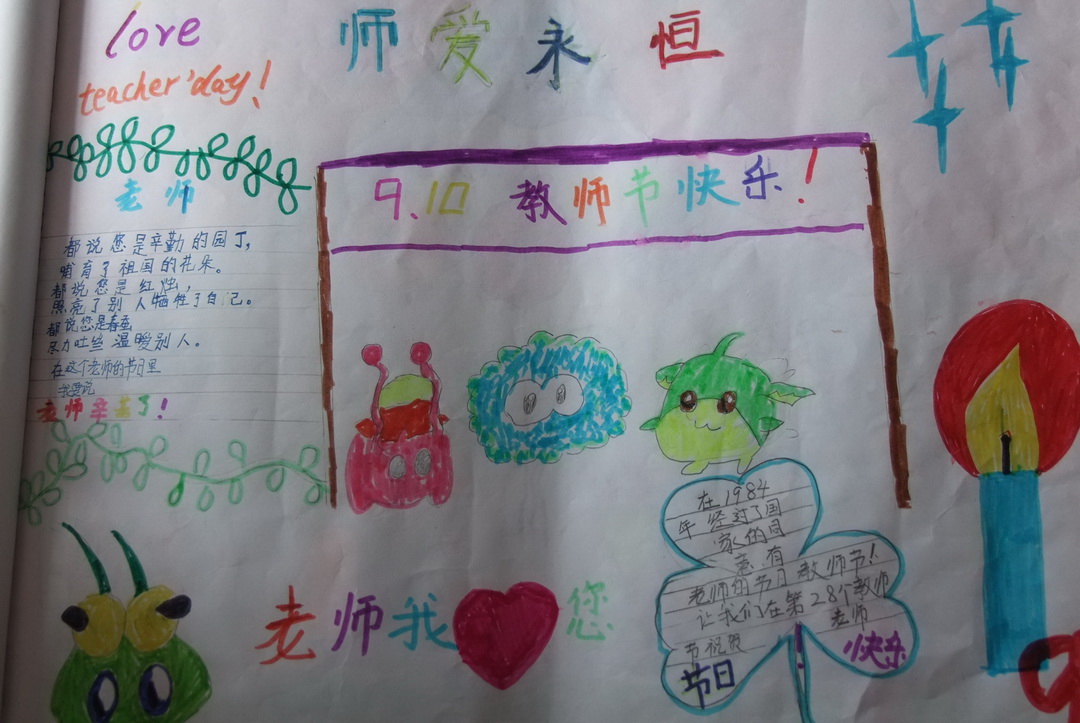 love
teacher'day!
师爱永恒
9.10 教师节快乐!
老师
都说您是辛勤的园丁,
哺育了祖国的花朵。
都说您是红烛,
照亮了别人牺牲了自己。
都说您是春蚕
尽力吐丝温暖别人。
在这个老师的节日里
我要说
老师辛苦了!
老师我
您
在1984
年经过了国
家的同
意有
老师的节日教师节!
让我们在第28个教师
节祝贺
老师
节日
快乐
!